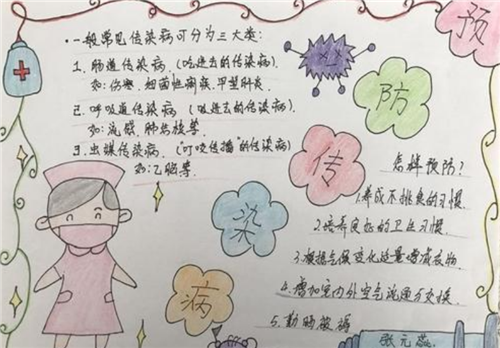 一般常见传染病可分为三大类:
1. 肠道传染病 (吃进去的传染病)
如: 伤寒、细菌性痢疾、甲型肝炎
2. 呼吸道传染病 (吸进去的传染病)
如: 流感、肺结核等
3. 虫媒传染病. ("叮咬传播"的传染病)
如: 乙脑等
预
防
传
染
病
怎样预防?
1. 养成不挑食的习惯.
2. 培养良好的卫生习惯.
3. 根据气候变化适量增减衣物
4. 增加室内外空气流通与交换.
5. 勤晒被褥
张元